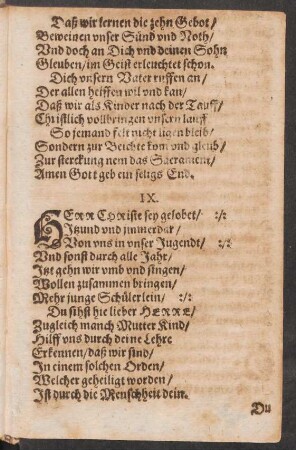 Daß wir lernen die zehn Gebot/
Beweinen vnser Sünd vnd Noth/
Vnd doch an Dich vnd deinen Sohn
Gleuben/ im Geist erleuchtet schon.
Dich vnsern Vater ruffen an/
Der allen helffen wil vnd kan/
Daß wir als Kinder nach der Tauff/
Christlich vollbringen vnsern lauff
So jemand felt nicht ligen bleib/
Sondern zur Beichte kom vnd gleub/
Zur sterckung nem das Sacrament/
Amen Gott geb ein seligs End.
IX.
HERR Christe sey gelobet/ :/:
Jtzund vnd jmmerdar/
Von vns in vnser Jugendt/ :/:
Vnd sonst durch alle Jahr/
Jtzt gehn wir vmb vnd singen/
Wollen zusammen bringen/
Mehr junge Schülerlein/ :/:
Du sihst hie lieber HERRE/
Zugleich manch Mutter Kind/
Hilff vns durch deine Lehre
Erkennen/ daß wir sind/
Jn einem solchen Orden/
Welcher geheiligt worden/
Jst durch die Menschheit dein.
Du